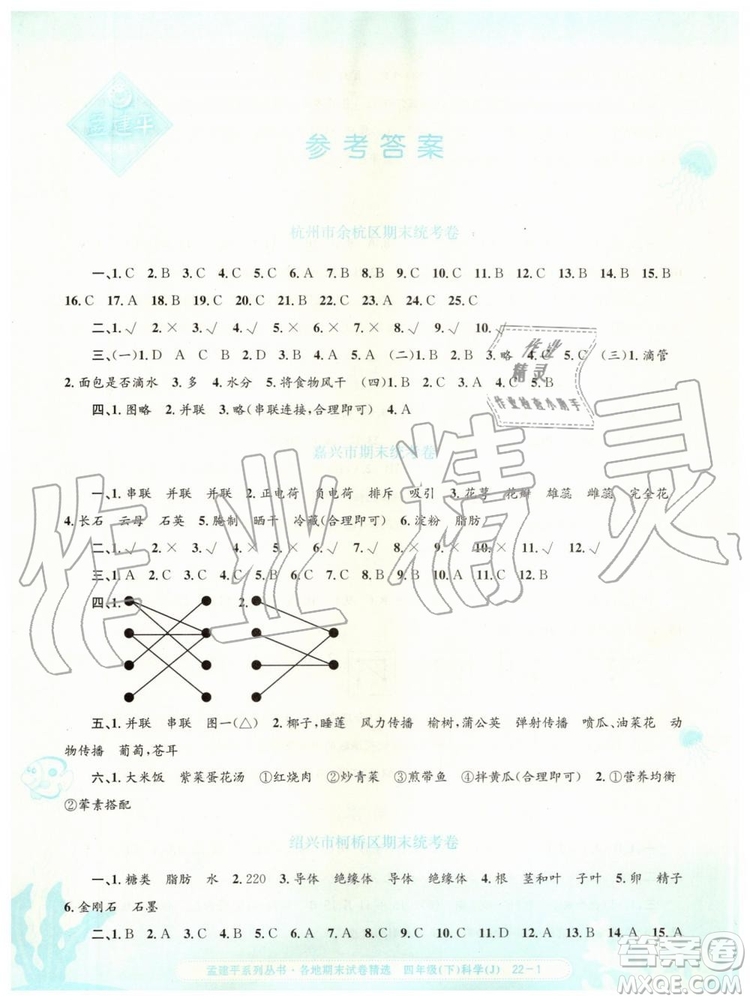 孟建平
参考答案
杭州市余杭区期末统考卷
一、1. C 2. B 3. C 4. C 5. A 6. A 7. B 8. B 9. C 10. A 11. A 12. B 13. B 14. B 15. B
16. C 17. A 18. B 19. C 20. B 21. C 22. A 23. B 24. C 25. C
二、1. √ 2. × 3. × 4. √ 5. √ 6. × 7. √ 8. √ 9. √ 10. √
三、(一)1. D A C B 2. B 3. A 4. A 5. A (二)1. B 2. B 3. 略 4. C 5. C (三)1. 滴管
2. 面包是否滴水 3. 多 4. 水分 5. 将食物风干 (四)1. A 2. C 3. C 4. B 5. B
四、1. 图略 2. 并联 3. 略(串联连接,合理即可) 4. A
嘉兴市期末统考卷
一、1. 串联 并联 并联 2. 正电荷 负电荷 排斥 吸引 3. 花萼 花瓣 雄蕊 雌蕊 完全花
4. 长石 云母 石英 5. 腌制 晒干 冷藏(合理即可) 6. 淀粉 脂肪
二、1. √ 2. × 3. × 4. √ 5. × 6. √ 7. √ 8. × 9. × 10. × 11. × 12. √
三、1. A 2. B 3. C 4. A 5. C 6. B 7. A 8. C 9. B 10. C 11. C 12. B
四、1. 2.
五、1. 并联 串联 图一(△) 2. 椰子,睡莲 风力传播 榆树,蒲公英 弹射传播 喷瓜、油菜花 动
物传播 葡萄,苍耳
六、1. 大米饭 紫菜蛋花汤 ①红烧肉 ②炒青菜 ③煎带鱼 ④拌黄瓜(合理即可) 2. ①营养均衡
②荤素搭配
绍兴市柯桥区期末统考卷
一、1. 糖类 脂肪 水 2. 220 3. 导体 绝缘体 导体 绝缘体 4. 根 茎和叶 子叶 5. 卵 精子
6. 金刚石 石墨
二、1. C 2. B 3. A 4. C 5. C 6. A 7. B 8. C 9. C 10. C 11. D 12. A 13. C 14. A 15. A
孟建平系列丛书·各地期末试卷精选 四年级(下)科学(J) 22-1
作业精灵
作业
精灵
作业检查小助手
答案圈
MXQE.COM